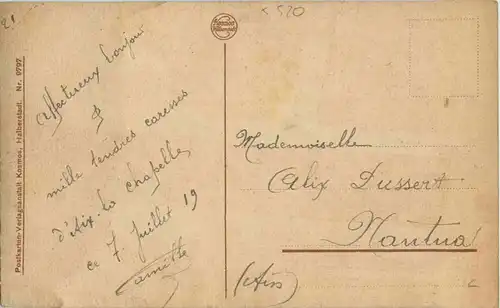 21
520
affectueux bonjour
&
mille tendres caresses
d'Aix-la Chapelle
ce 7 Juillet 19
Mademoiselle
Alix Dussert
Nantua
(Ain)
Postkarten-Verlagsanstalt Kosmos, Halberstadt. Nr. 9797.